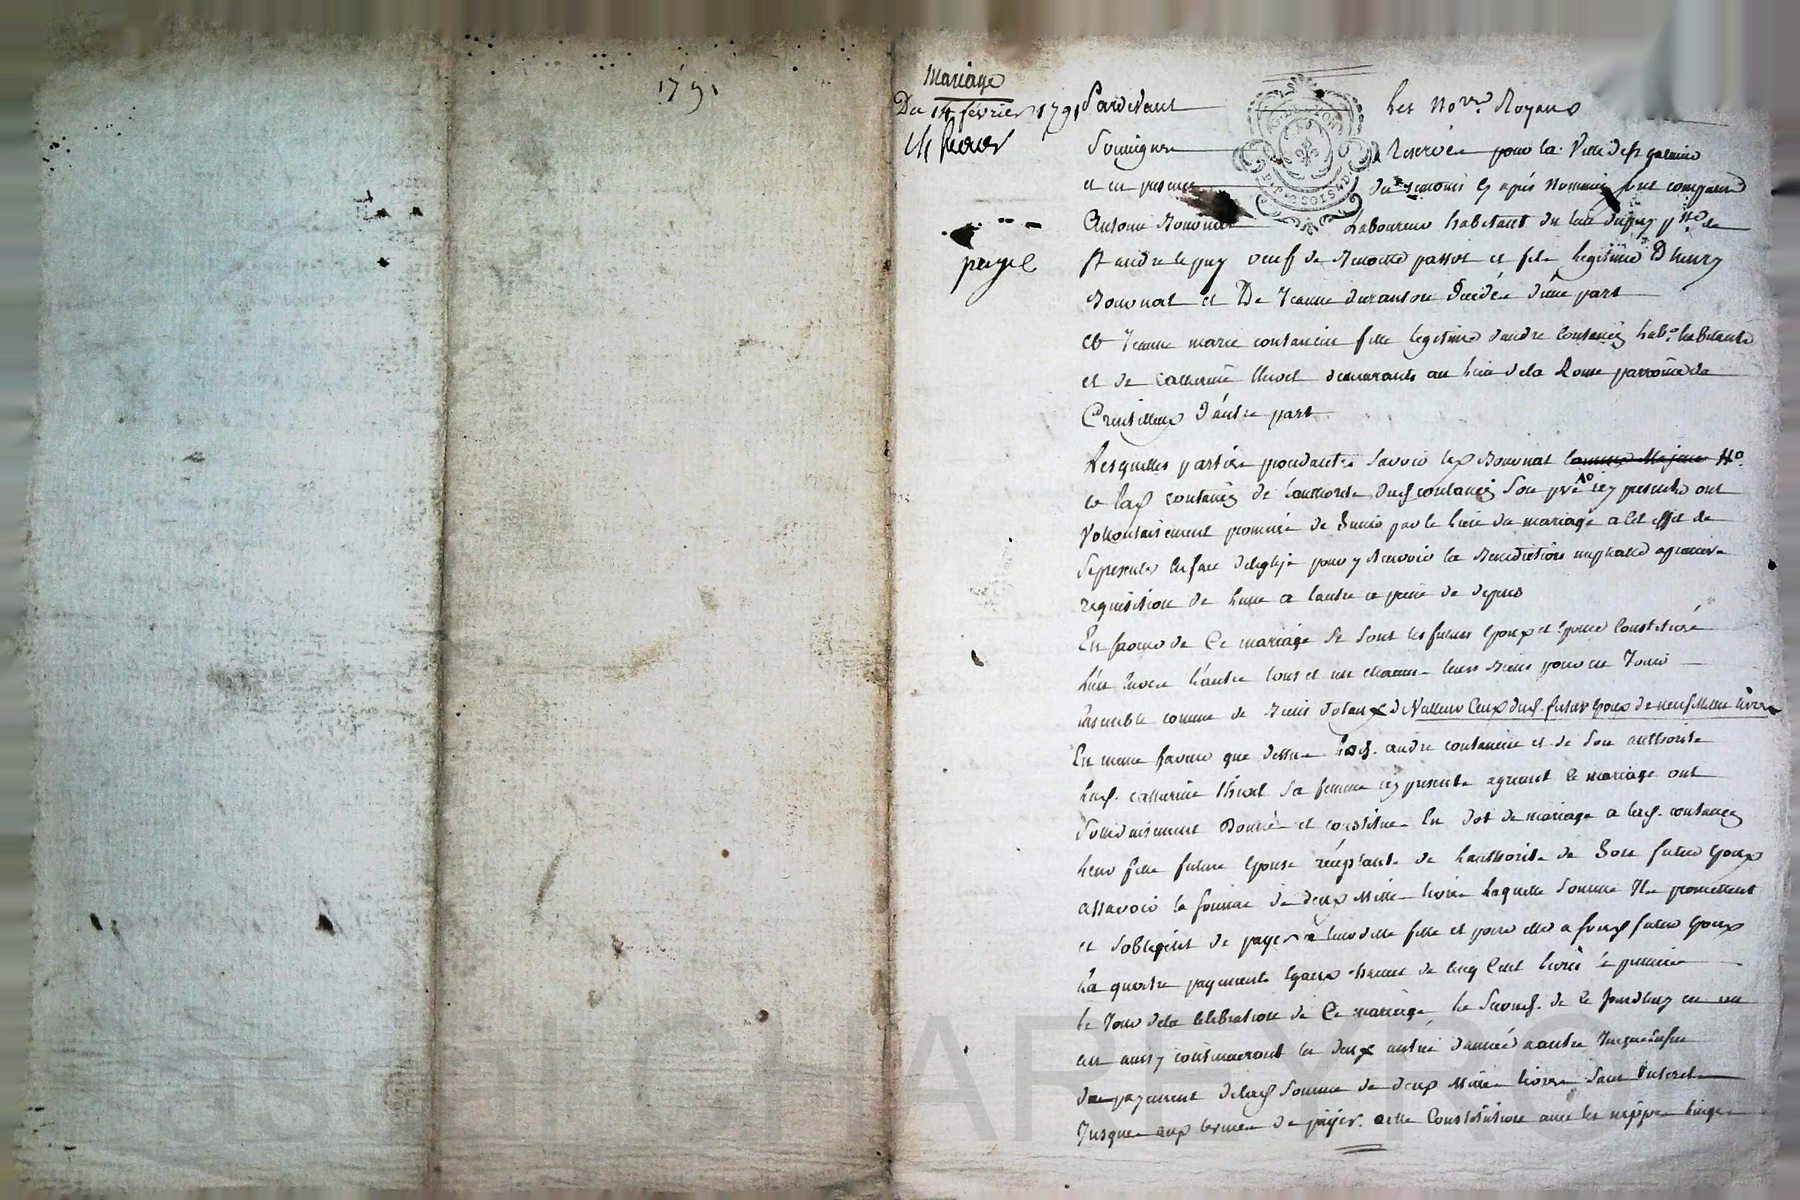 1791
Mariage
Du 14 février 1791
payé
Pardevant les No.res Royaux
Soussignés Réservés pour la Ville de St galmier
et en présence des témoins cy après nommés furent comparus
Antoine Bonnat Laboureur habitant du lieu dupuy p.sse de
St andré le puy veuf de Benoitte passot et fils legitime D'henry
Bonnat et De Jeanne duranton décédée d'une part
et Jeanne marie contancin fille legitime d'andré contancin habitante
et de Catherine thivel demeurants au lieu dela Rome parroisse de
Creintilleux d'autre part
Lesquelles parties procedantes savoir led Bonnat comme Majeur
et lad contancin de l'authorité dud contancin Son père icy présents ont
Volontairement promis de S'unir par le lien du mariage a cet effet de
Se présenter en face d'eglise pour y recevoir la Benediction nuptialle a premiere
requisition de l'une a l'autre a peine de depens
En faveur de Ce mariage Se Sont les futurs Epoux et Epouse Constitués
l'un envers l'autre tous et un chacun leurs Biens pour en Jouir
Ensemble comme de Biens dotaux de Valleur Ceux dud. futur Epoux de neuf Mille livres
En meme faveur que dessus led. andré contancin et de Son authorité
lad. catherine thivel Sa femme icy presente agreant le mariage ont
Solidairement Donné et constitué En dot de mariage a lad. contancin
leur fille future Epouse acceptante de l'authorité de Son futur Epoux
assavoir la Somme de deux Mille livres laquelle Somme Ils promettent
et S'obligent de payer a leurditte fille et pour elle a Sond futur Epoux
En quatre payements Egaux chacun de cinq Cent livres le premier
le Jour dela célébration de Ce mariage le Second. de ce Jourdhuy en un
an ainsy continueront les deux autres d'année a autre Jusqu'a fin
de payement delad Somme de deux Mille livres Sans Interet
Jusques aux termes de payer. cette Constitution avec les nippes linges